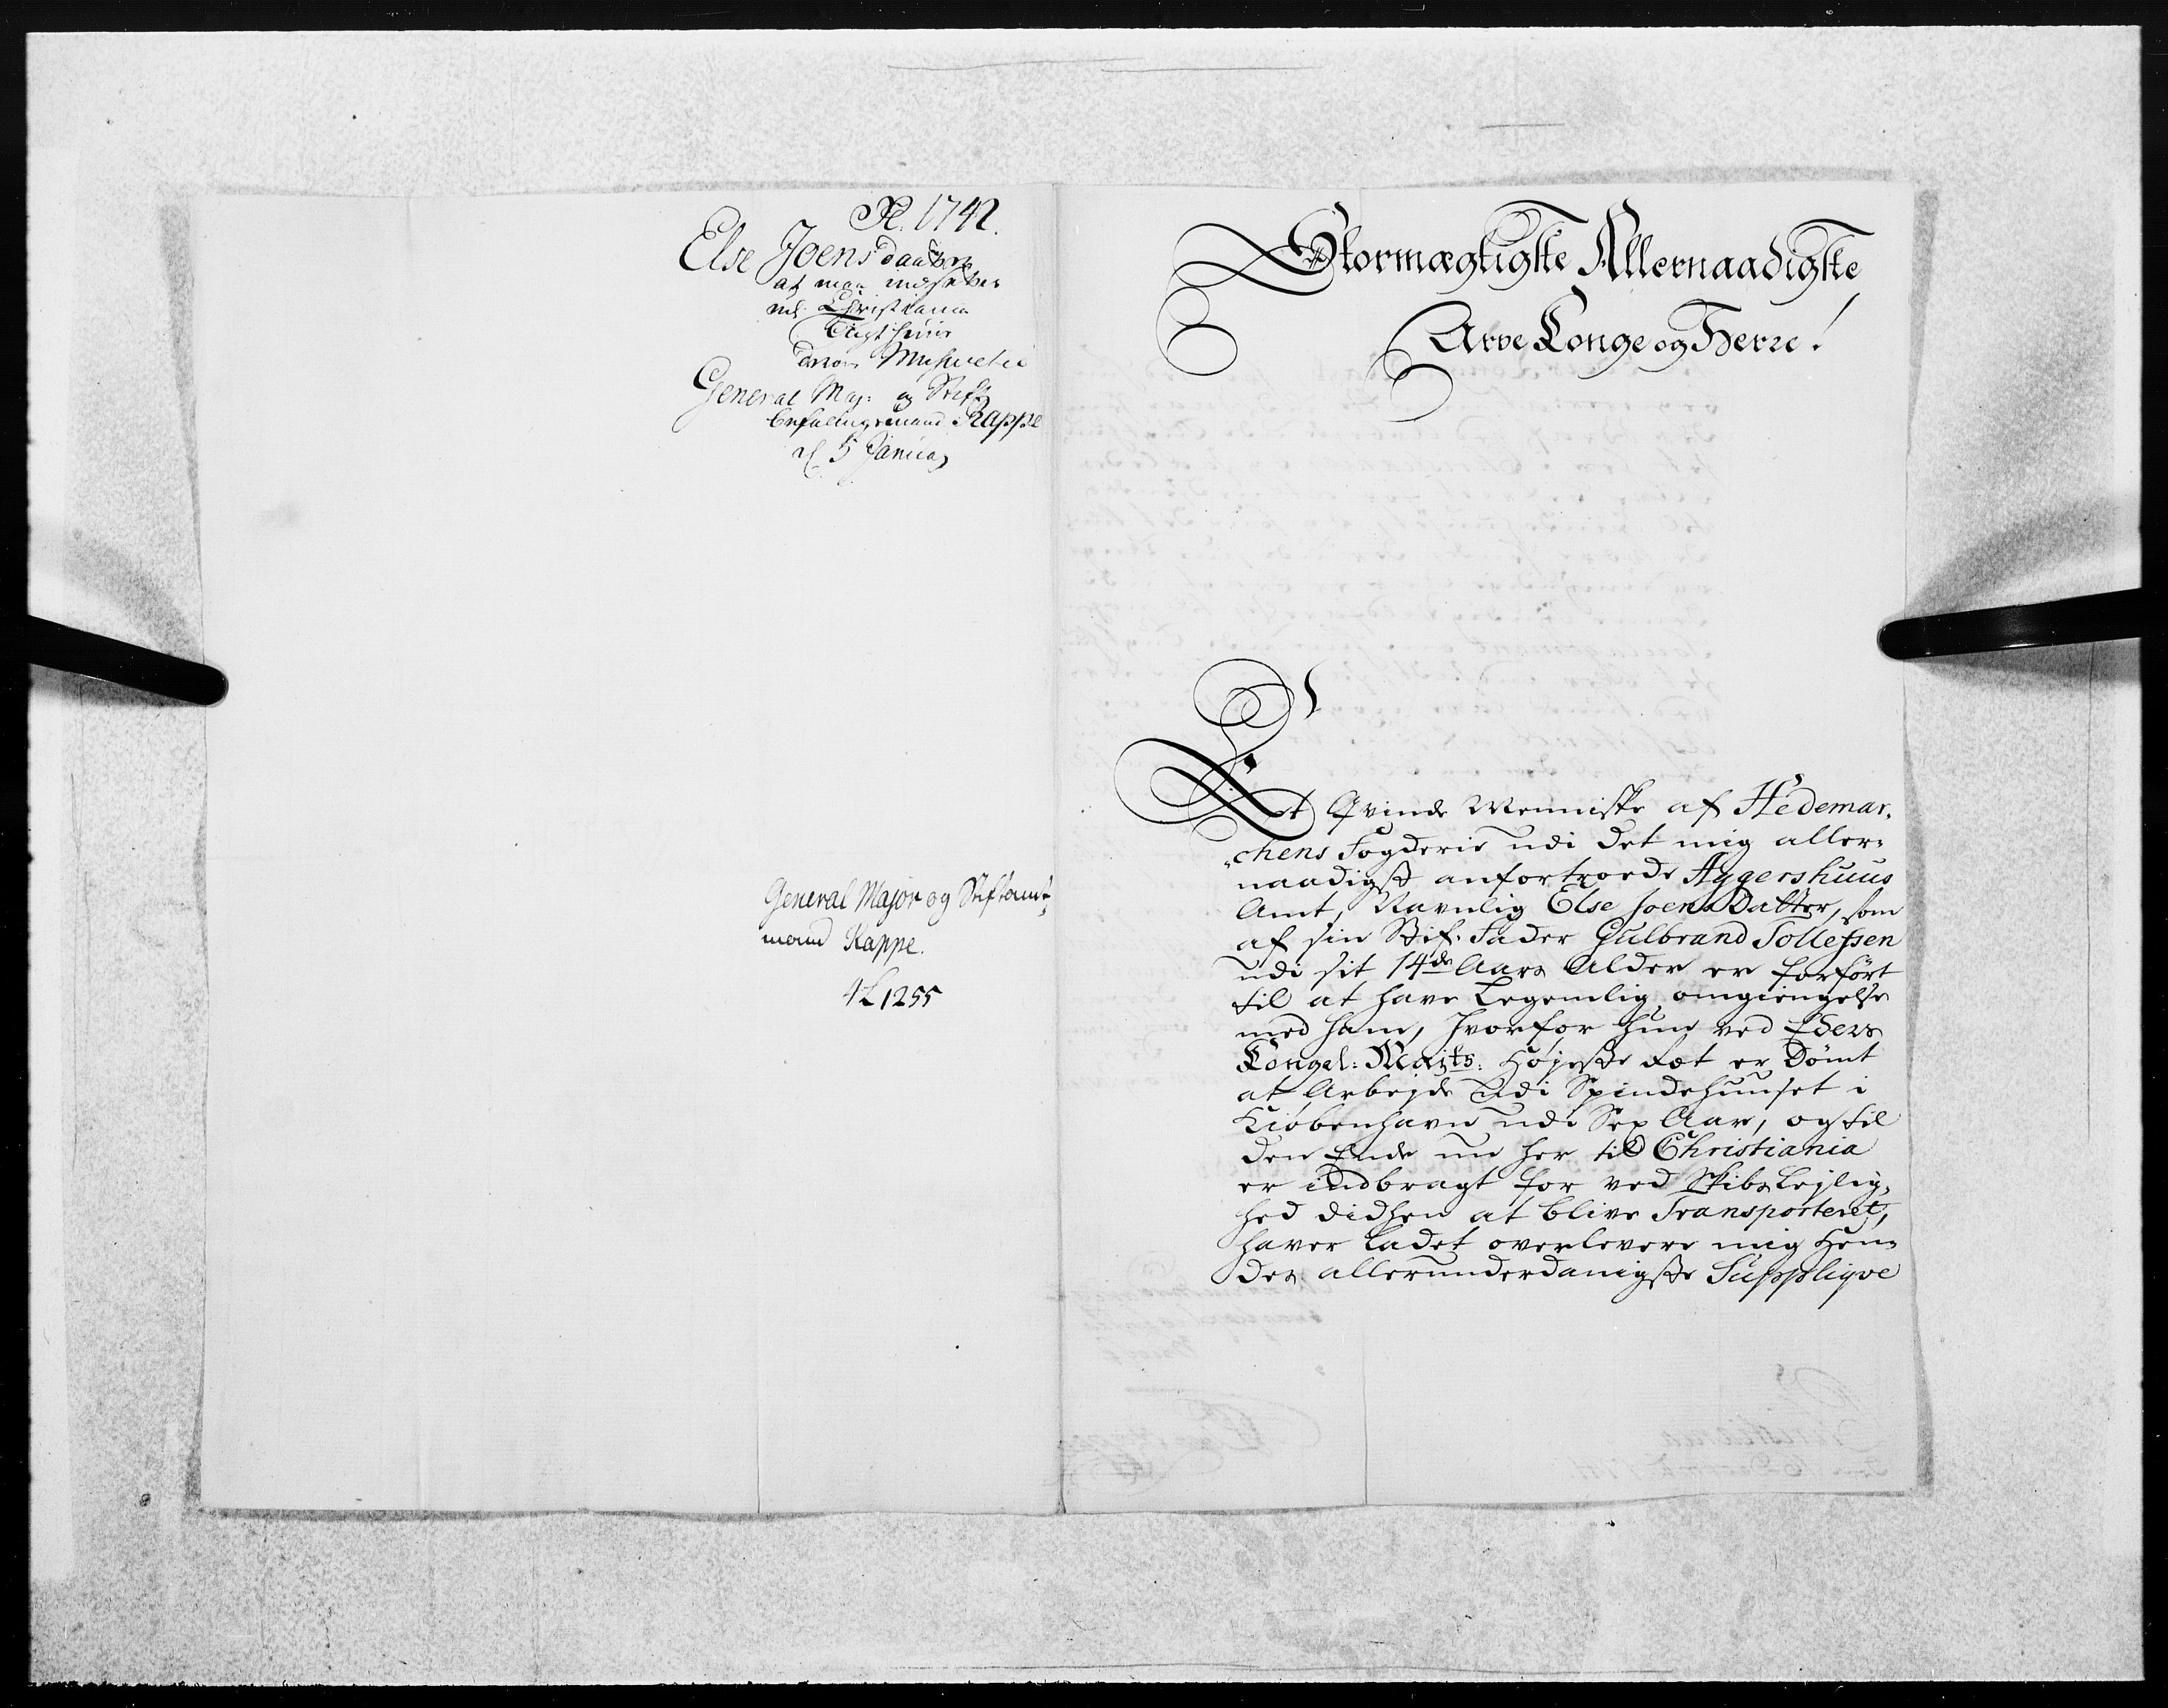 1742.
Else Joensdaatter
at maa indsettes
udi Christiania
Tugthuus
General Maj: og Stift
befalingsmand Rappe
5 Januar
General Major og Stiftamt-
mand Rappe.
1255
Stormægtigste Allernaadigste
Arve Konge og Herre!
Et Qvinde Menniske af Hedemar-
chens Fogderie udi det mig aller-
naadigst anfortroede Aggershuus
Amt, Navnlig Else Joens Datter, som
af sin Stif-Fader Gulbrand Tollefsen
udi sit 14de Aars Alder er forført
til at have Legemlig omgiengelse
med ham, hvorfor hun ved Eders
Kongel: Majts: Højeste Ræt er Dømt
at Arbejde udi Spindehuuset i
Kiøbenhavn udi Sex Aar, og til
den Ende nu her til Christiania
er indbragt for ved Skibs Lejlig-
hed didhen at blive Transporteret,
haver ladet overlevere mig Hen-
des allerunderdanigste Supplique